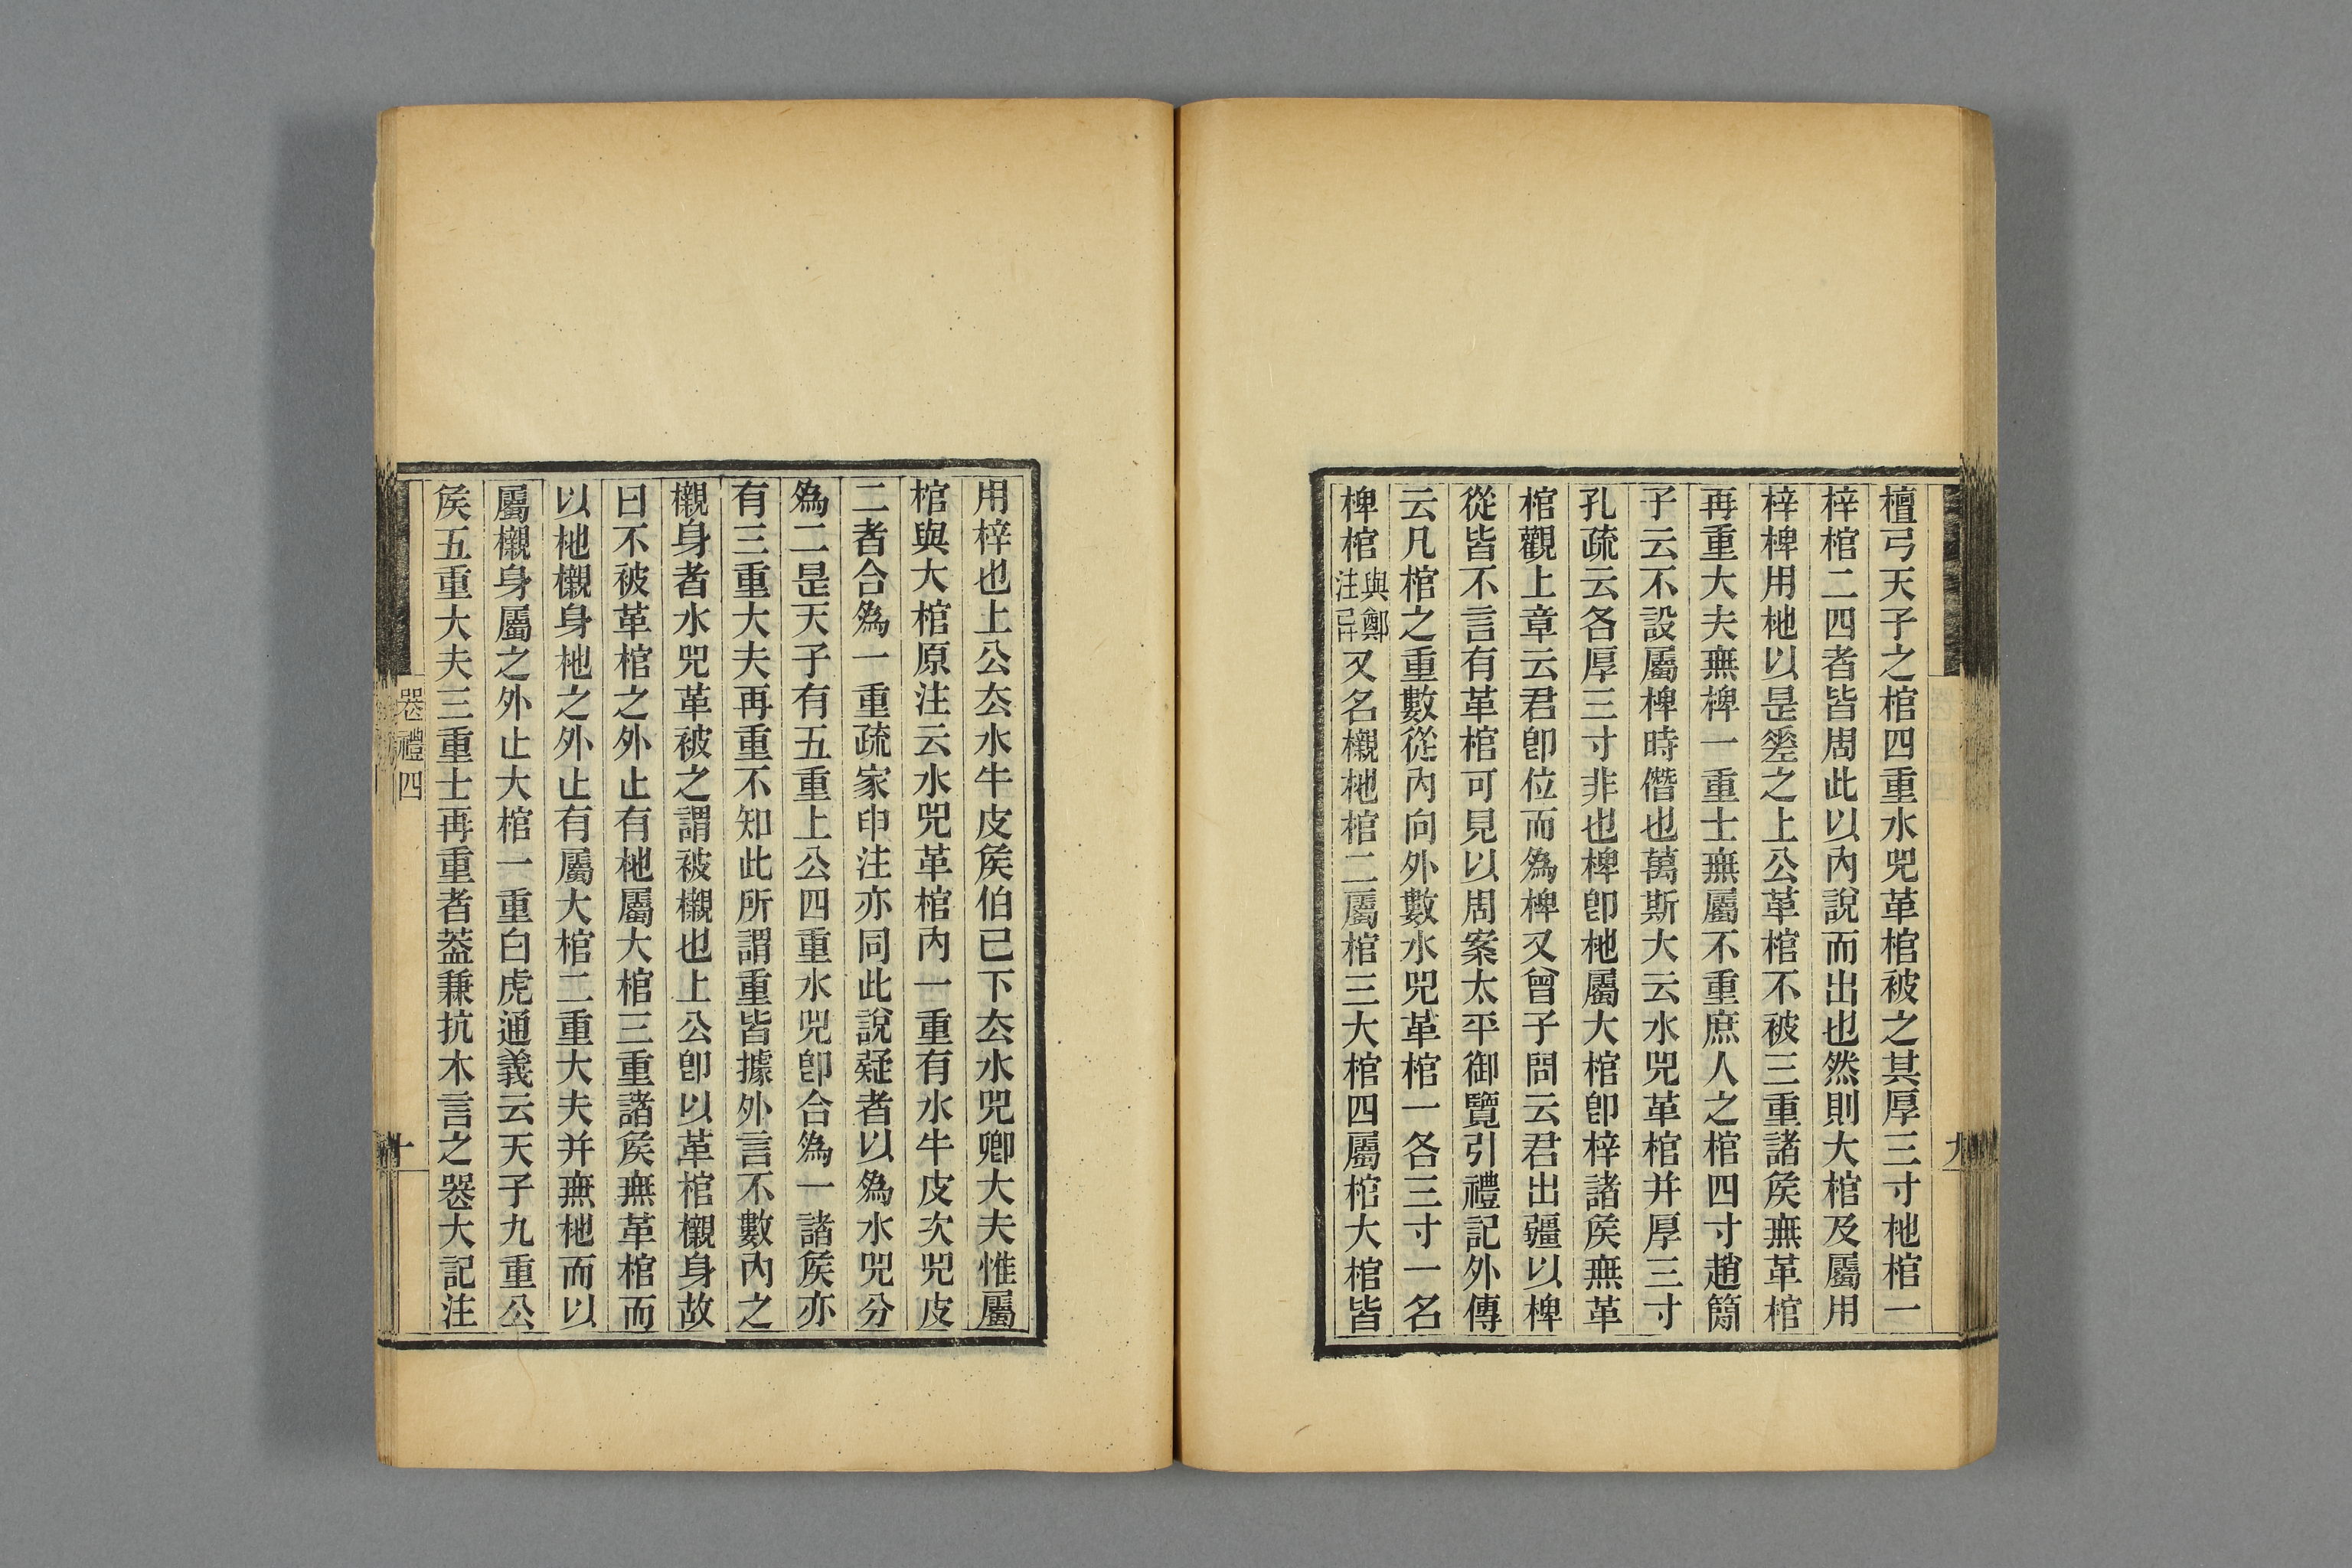 檀弓天子之棺四重水兕革棺被之其厚三寸杝棺一
梓棺二四者皆周此以內說而出也然則大棺及屬用
梓椑用杝以是差之上公革棺不被三重諸侯無革棺
再重大夫無椑一重士無屬不重庶人之棺四寸趙簡
子云不設屬椑時僭也萬斯大云水兕革棺并厚三寸
孔疏云各厚三寸非也椑卽杝屬大棺卽梓諸侯無革
棺觀上章云君卽位而爲椑又曾子問云君出疆以椑
從皆不言有革棺可見以周案太平御覽引禮記外傳
云凡棺之重數從內向外數水兕革棺一各三寸一名
椑棺與鄭注異又名櫬杝棺二屬棺三大棺四屬棺大棺皆
九
用梓也上公厺水牛皮侯伯已下厺水兕卿大夫惟屬
棺與大棺原注云水兕革棺內一重有水牛皮次兕皮
二者合爲一重疏家申注亦同此說疑者以爲水兕分
爲二是天子有五重上公四重水兕卽合爲一諸侯亦
有三重大夫再重不知此所謂重皆據外言不數內之
櫬身者水兕革被之謂被櫬也上公卽以革棺櫬身故
曰不被革棺之外止有杝屬大棺三重諸侯無革棺而
以杝櫬身杝之外止有屬大棺二重大夫并無杝而以
屬櫬身屬之外止大棺一重白虎通義云天子九重公
侯五重大夫三重士再重者葢兼抗木言之喪大記注
喪禮四
十